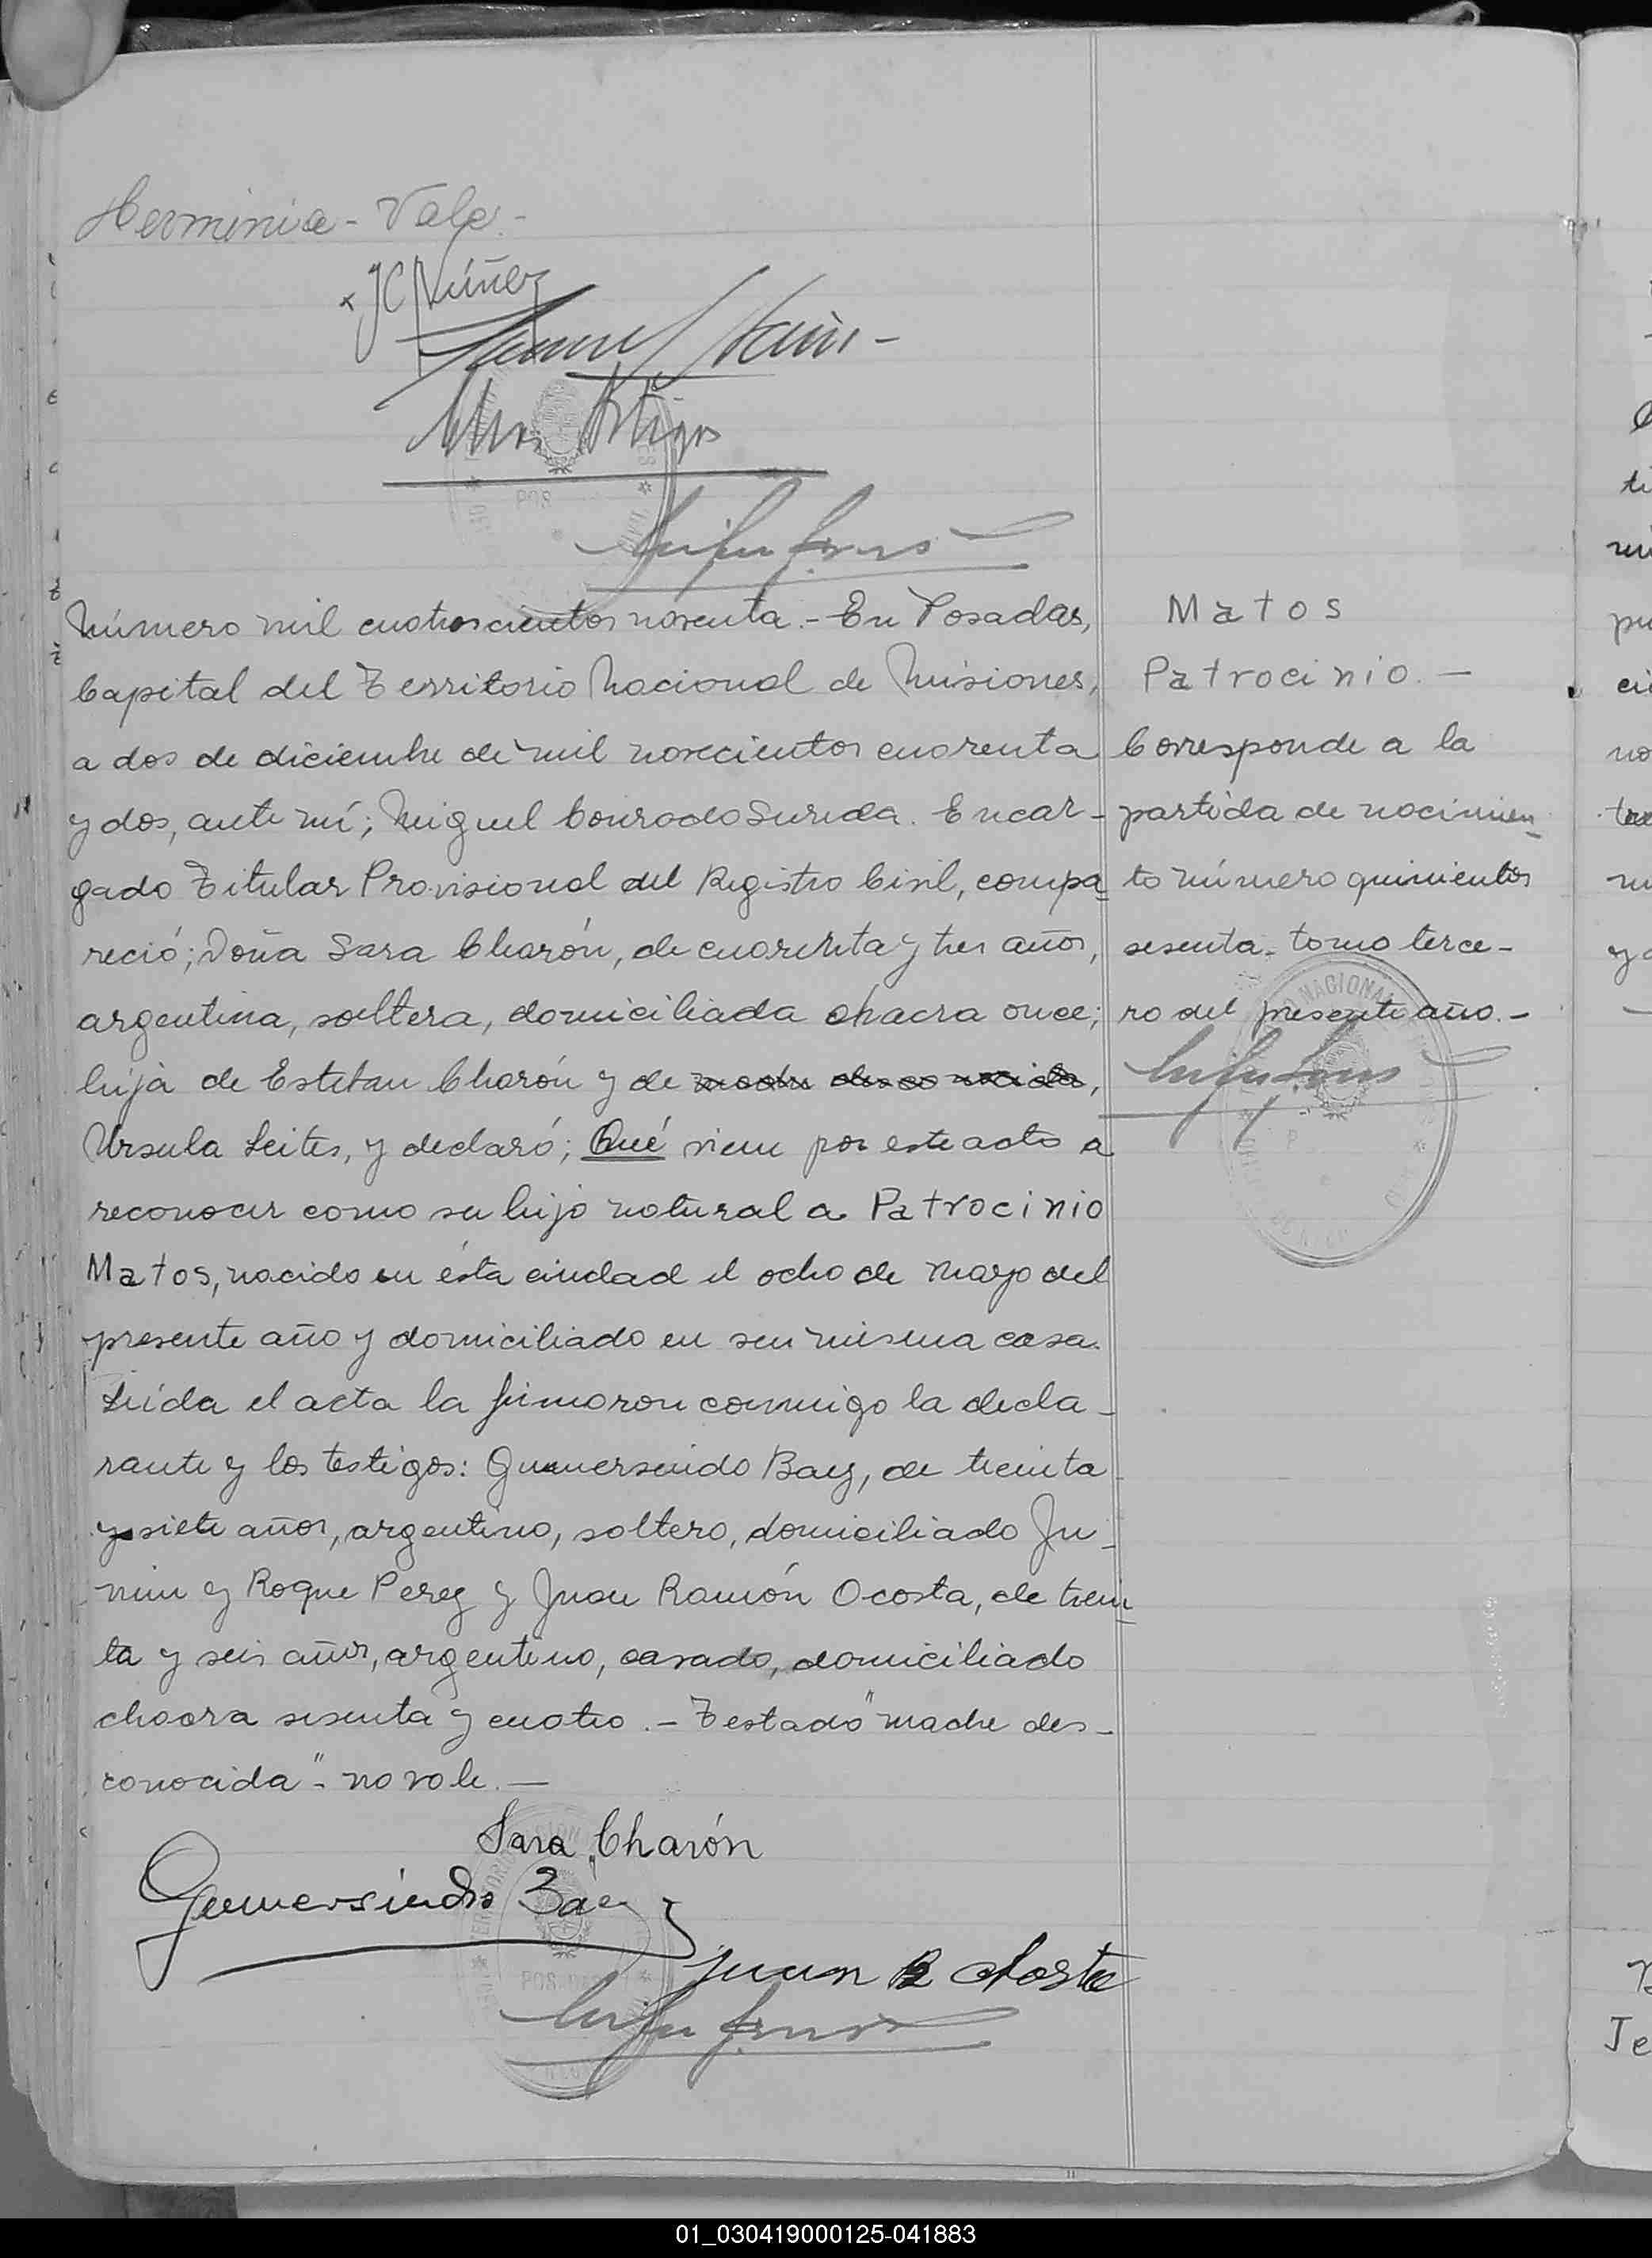 Herminia - Vale.-
JC Núñez
Número mil cuatroscientos noventa.- En Posadas,
Capital del Territorio Nacional de Misiones,
a dos de diciembre de mil novecientos cuarenta
y dos, ante mí; Miguel Conrado Sureda. Encar-
gado Titular Provisional del Registro Civil, compa-
reció; Doña Sara Charón, de cuarenta y tres años,
argentina, soltera, domiciliada chacra once;
hija de Esteban Charón y de madre desconocida,
Ursula Leites, y declaró; Qué viene por este acto a
reconocer como su hijo natural a Patrocinio
Matos, nacido en ésta ciudad el ocho de Mayo del
presente año y domiciliado en su misma casa.
Leída el acta la firmaron conmigo la decla-
rante y los testigos: Gumersindo Baez, de treinta
y siete años, argentino, soltero, domiciliado Ju-
nin y Roque Perez y Juan Ramón Acosta, de trein-
ta y seis años, argentino, casado, domiciliado
chacra sesenta y cuatro.- Testado "madre des-
conocida"- no vale.-
Sara Charón
Gumersindo Báez
Juan R Acosta
Matos
Patrocinio.-
Corresponde a la
partida de nacimien-
to número quinientos
sesenta- tomo terce-
ro del presente año.-
01_030419000125-041883